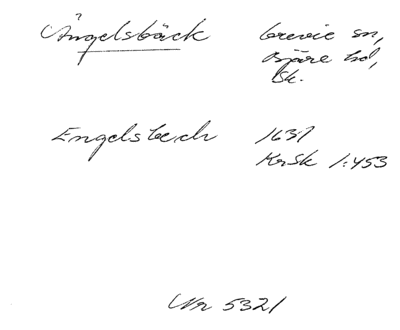 Ängelsbäck Grevie sn,
Bjäre hd,
Sk.
Engelsbech 1637
KrSk 1:453
Nr 5321